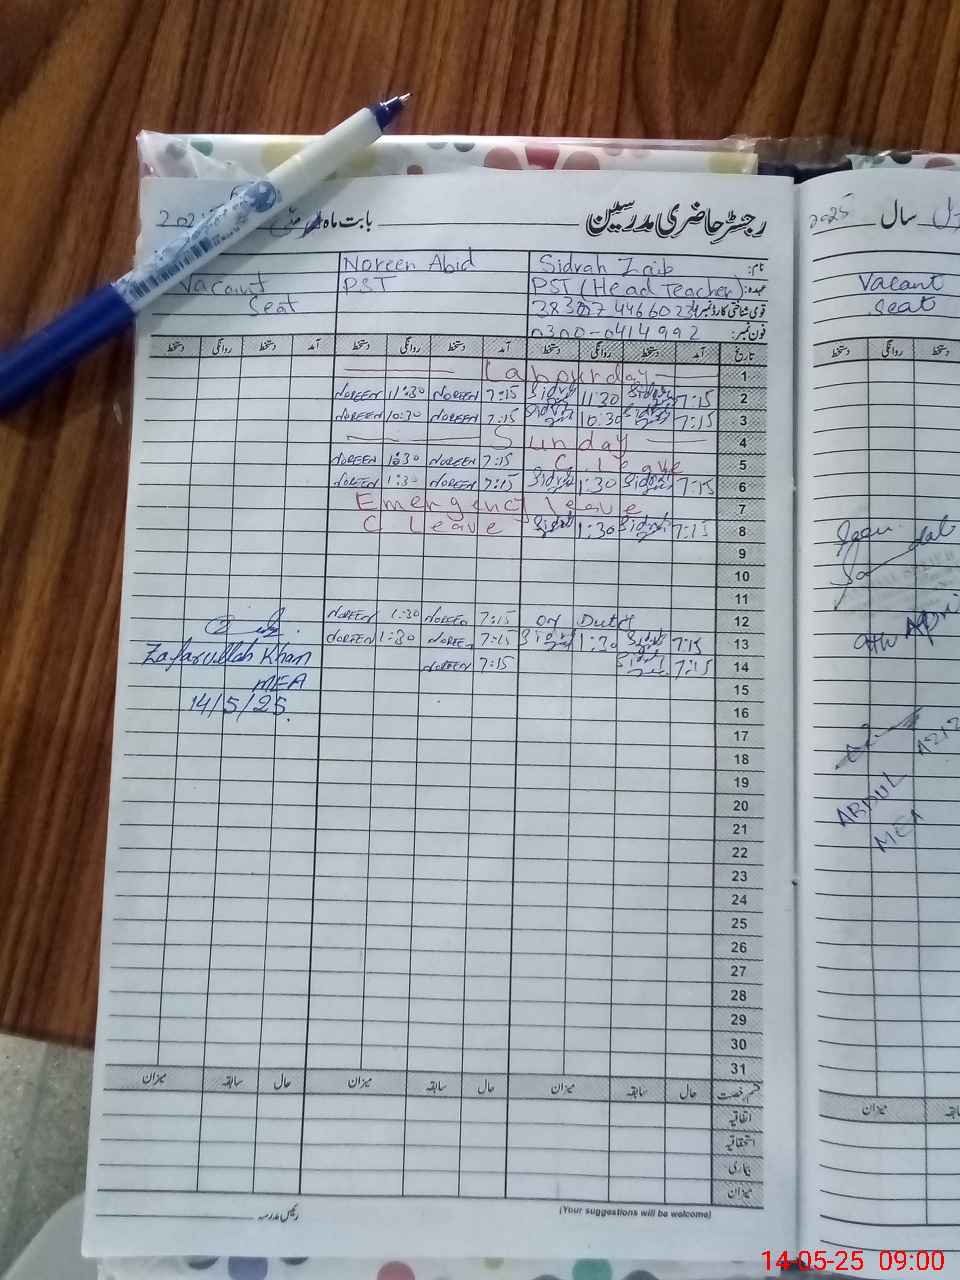 رجسٹر حاضری مدرسین بابت ماہ مئی
سال 2025
نام: Sidrah Zaib Noreen Abid
عہدہ: PST (Head Teacher) PST Vacant
Seat
قومی شناختی کارڈ نمبر
فون نمبر: 0300-0414992
Vacant
Seat
تاریخ آمد دستخط روانگی دستخط آمد دستخط روانگی دستخط آمد دستخط روانگی دستخط
1 Labour day
2 7:15 Sidra 11:30 Sidra 7:15 NOREEN 11:30 NOREEN
3 7:15 Sidra 10:30 Sidra 7:15 NOREEN 10:30 NOREEN
4 Sunday
5 C. leave 7:15 NOREEN NOREEN
6 7:15 Sidra 1:30 Sidra 7:15 NOREEN 1:30 NOREEN
7 Emergency leave
8 7:15 Sidra 1:30 Sidra C leave
9
10
11
12 On Duty 7:15 NOREEN 1:30 NOREEN
13 7:15 Sidra 1:30 Sidra 7:15 NOREEN 1:30 NOREEN
14 7:15 Sidra 7:15 NOREEN
15
16
17
18
19
20
21
22
23
24
25
26
27
28
29
30
31
Zafarullah Khan
MEA
14/5/25
قسم رخصت حال سابقہ میزان حال سابقہ میزان حال سابقہ میزان
اتفاقیہ
استحقاقیہ
بیماری
میزان
رئیس مدرسہ
(Your suggestions will be welcome)
دستخط روانگی دستخط
9th April
ABDUL AZIZ
MEA
میزان سابقہ
14-05-25 09:00